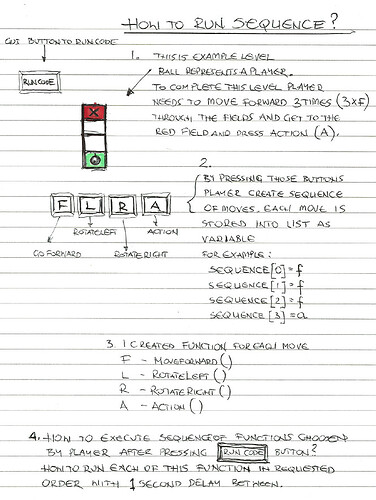 HOW TO RUN SEQUENCE?
GUI BUTTON TO RUN CODE
RUN CODE
1. THIS IS EXAMPLE LEVEL
BALL REPRESENTS A PLAYER.
TO COMPLETE THIS LEVEL PLAYER
NEEDS TO MOVE FORWARD 3 TIMES (3xf)
THROUGH THE FIELDS AND GET TO THE
RED FIELD AND PRESS ACTION (A).
X
2.
BY PRESSING THOSE BUTTONS
PLAYER CREATE SEQUENCE
OF MOVES. EACH MOVE IS
STORED INTO LIST AS
VARIABLE
F L R A
ROTATE LEFT
ACTION
GO FORWARD
ROTATE RIGHT
FOR EXAMPLE:
SEQUENCE[0] = f
SEQUENCE[1] = f
SEQUENCE[2] = f
SEQUENCE[3] = a
3. I CREATED FUNCTION FOR EACH MOVE
F - MOVEFORWARD()
L - ROTATELEFT()
R - ROTATERIGHT()
A - ACTION()
4. HOW TO EXECUTE SEQUENCE OF FUNCTIONS CHOOSEN
BY PLAYER AFTER PRESSING RUN CODE BUTTON?
HOW TO RUN EACH OF THIS FUNCTION IN REQUESTED
ORDER WITH 1 SECOND DELAY BETWEEN.